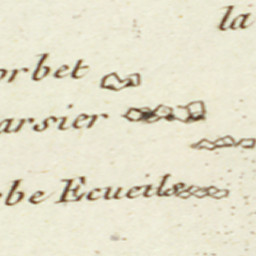 la
orbet
arsier
be Ecueils